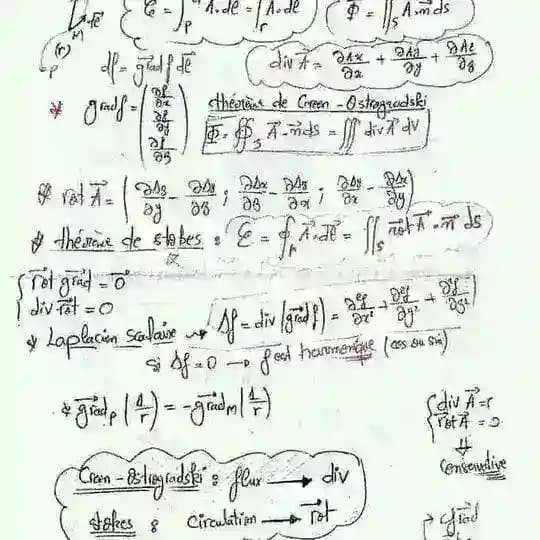 ℰ = ∫_P^M A⃗.dℓ⃗ = ∫_Γ A⃗.dℓ⃗
Φ = ∬_S A⃗.n⃗ ds
M dℓ⃗
(Γ)
P
df = grad⃗f dℓ⃗
div A⃗ = ∂Ax/∂x + ∂Ay/∂y + ∂Az/∂z
* grad⃗f = (∂f/∂x ; ∂f/∂y ; ∂f/∂z)
théorème de Green-Ostrogradski
Φ = ∯_S A⃗.n⃗ ds = ∭ div A⃗ dV
* rot A⃗ = (∂Az/∂y - ∂Ay/∂z ; ∂Ax/∂z - ∂Az/∂x ; ∂Ay/∂x - ∂Ax/∂y)
* théorème de stokes : ℰ = ∮_Γ A⃗.dℓ⃗ = ∬_S rot⃗ A⃗.n⃗ ds
{ rot⃗ grad⃗ = 0⃗
div rot⃗ = 0
* Laplacien scalaire ⇝ Δf = div (grad⃗ f) = ∂²f/∂x² + ∂²f/∂y² + ∂²f/∂z²
si Δf = 0 → f est harmonique (cos ou sin)
* grad⃗_P (1/r) = - grad⃗_M (1/r)
{ div A⃗ =
rot⃗ A⃗ = 0
⇓
conservative
Green-Ostrogradski : flux → div
stokes : circulation → rot⃗
grad